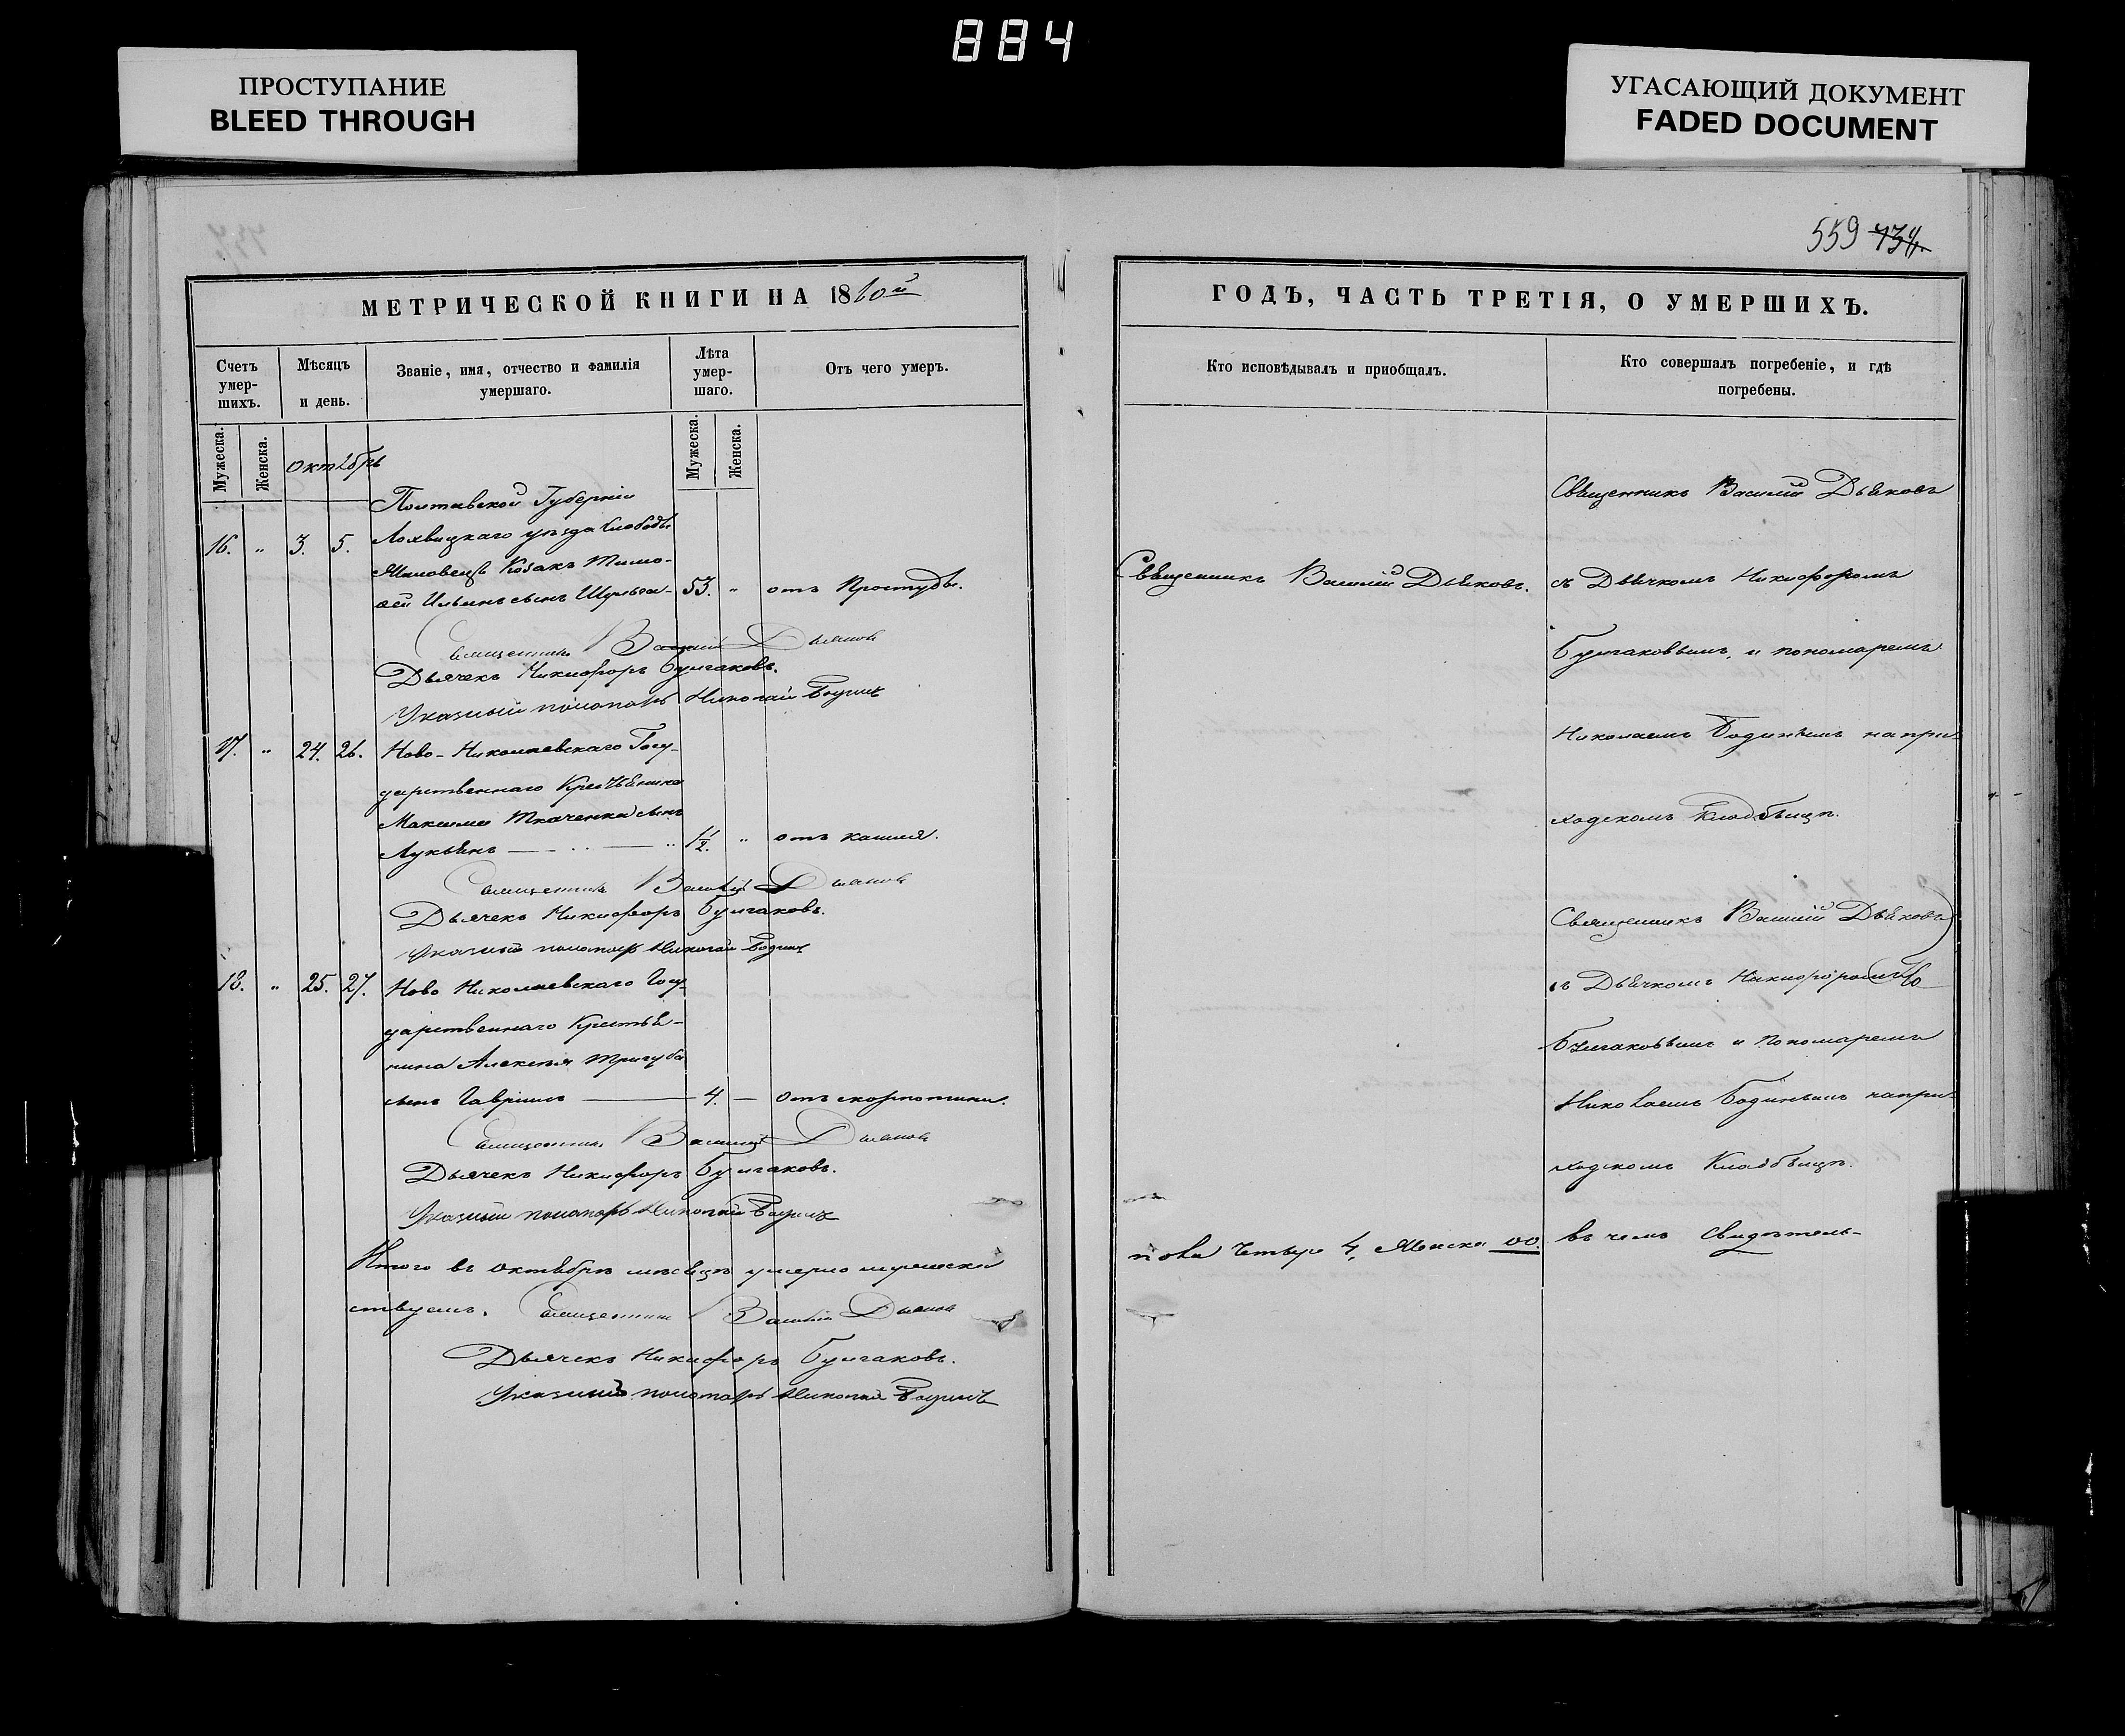 884
ПРОСТУПАНИЕ
BLEED THROUGH
УГАСАЮЩИЙ ДОКУМЕНТ
FADED DOCUMENT
559 734.
МЕТРИЧЕСКОЙ КНИГИ НА 1860й
Счетъ умер-шихъ.
Мѣсяцъ и день.
Званіе, имя, отчество и фамилія умершаго.
Лѣта умер-шаго.
Отъ чего умеръ.
Мужеска.
Женска.
Октябрь
Мужеска.
Женска.
Полтавской Губерніи
16. " 3. 5. Лохвицкаго уѣзда Слободы
Козакъ Тимо-
ѳей Ильинъ сынъ 53. " отъ Простуды.
Священникъ Василий Дьяковъ
Дьячекъ Никифоръ Булгаковъ.
Указный пономарь Николай Бодинъ
17. " 24. 26. Ново-Николаевскаго Госу-
дарственнаго Крестьянина
Максима Ткаченка сынъ
Лукьянъ 1 1/2. " отъ кашля.
Священникъ Василий Дьяковъ
Дьячекъ Никифоръ Булгаковъ.
Указный пономарь Николай Бодинъ
18. " 25. 27. Ново Николаевскаго Госу-
дарственнаго Крестья-
нина Алексѣя Тригуба
сынъ Гавріилъ — 4. — отъ скорлотины.
Священникъ Василий Дьяковъ
Дьячекъ Никифоръ Булгаковъ.
Указный пономарь Николай Бодинъ
Итого въ октябрѣ мѣсяцѣ умерло мужеска
ствуемъ. Священникъ Василий Дьяковъ
Дьячекъ Никифоръ Булгаковъ.
Указный пономарь Николай Бодинъ
ГОДЪ, ЧАСТЬ ТРЕТІЯ, О УМЕРШИХЪ.
Кто исповѣдывалъ и пріобщалъ.
Кто совершалъ погребеніе, и гдѣ погребены.
Священникъ Василий Дьяковъ
Священникъ Василий Дьяковъ. съ Дьячкомъ Никифоромъ
Булгаковымъ, и пономаремъ
Николаемъ Бодинымъ на при-
ходскомъ Кладбищѣ.
Священникъ Василий Дьяковъ
съ Дьячкомъ Никифоромъ
Булгаковымъ и Пономаремъ
Николаемъ Бодинымъ на при-
ходскомъ Кладбищѣ.
пола Четыре 4, Женска 00. въ чемъ Свидѣтель-